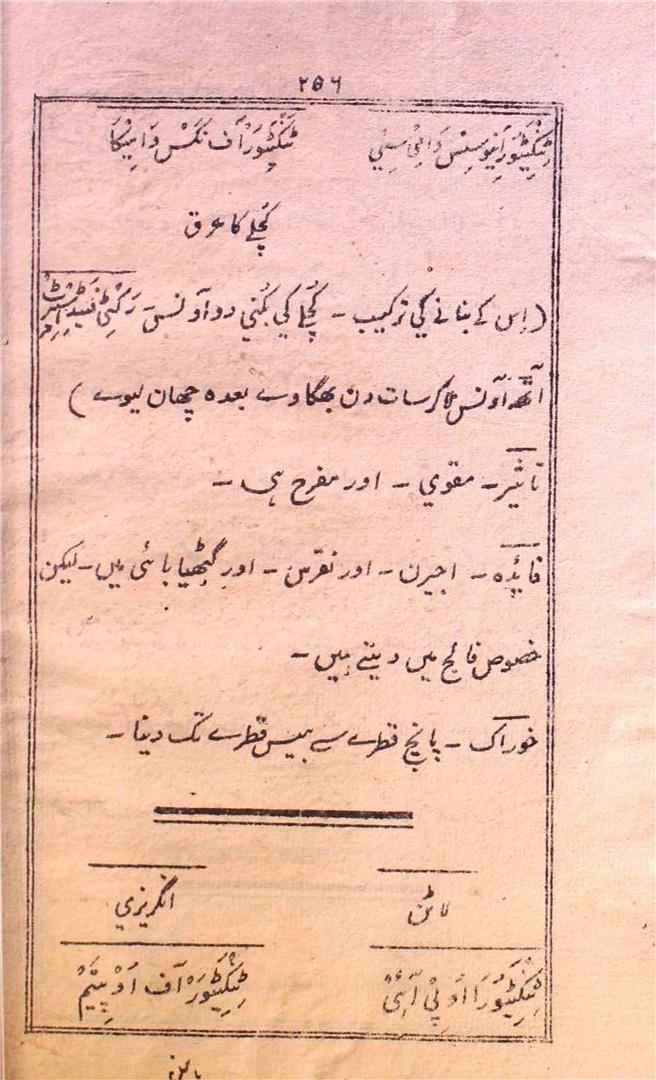 ۲۵۶
ٹنکٹیورا نیوسس وامی سی ٹنکٹیور آف نکس وامیکا
کچلے کا عرق
(اِس کے بنانے کی ترکیب - کچلے کی بُکنی دو آونس - رکٹی فیئڈ اسپرٹ
آٹھ آونس ملاکر سات دن بھگاوے بعدہ چھان لیوے)
تاثیر - مقوي - اور مفرح ہی -
فائدہ - اجیرن - اور نقرس - اور گٹھیا بائی میں - لیکن
خصوص فالج میں دیتے ہیں -
خوراک - پانچ قطرے سے بیس قطرے تک دینا -
لاٹن انگریزي
ٹنکٹیورا اوپی آئی ٹنکٹیور آف اوپیئم